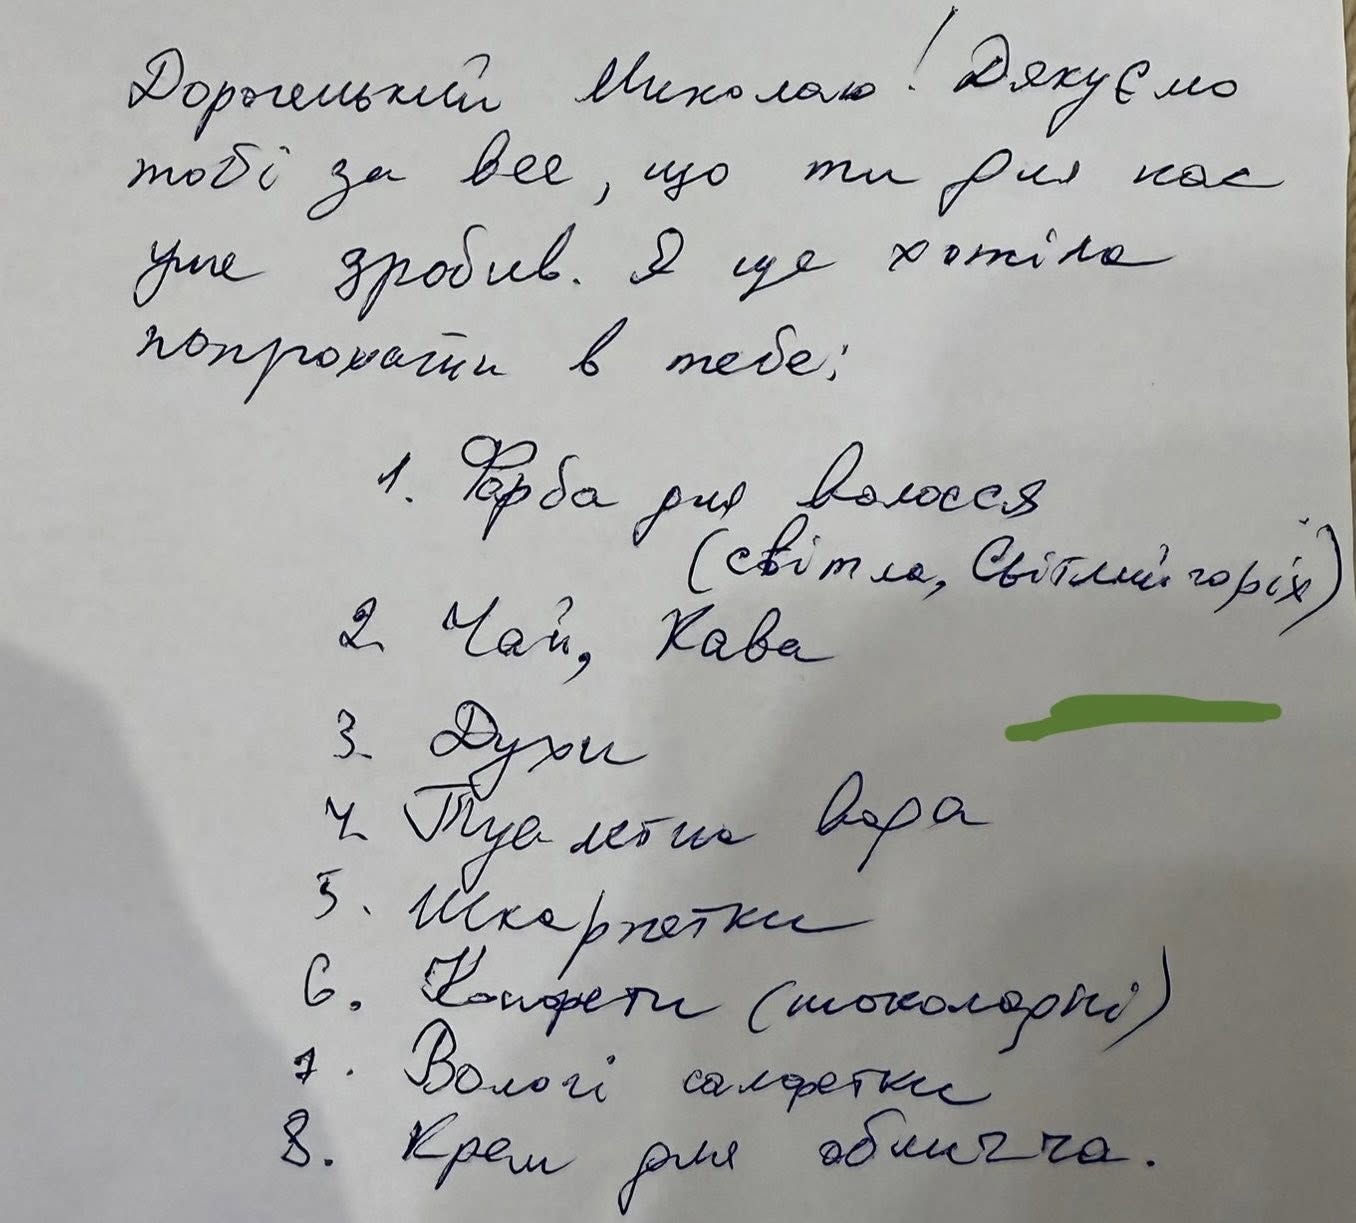 Дорогенький Миколаю! Дякуємо
тобі за все, що ти для нас
уже зробив. Я ще хотіла
попрохати в тебе:
1. Фарба для волосся
(світла, Світлий горіх)
2 Чай, Кава
3 Духи
4 Туалетна вода
5. Шкарпетки
6. Конфети (шоколадні)
7. Вологі салфетки
8. Крем для обличча.